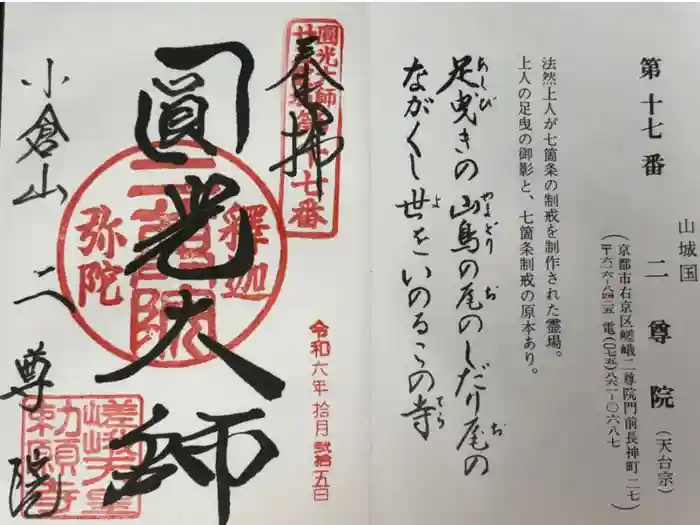 第十七番
山城国
二尊院(天台宗)
(京都市右京区嵯峨二尊院門前長神町二七
〒六一六-八四二五 電(〇七五)八六一-〇六八七)
法然上人が七箇条の制戒を制作された霊場。
上人の足曳の御影と、七箇条制戒の原本あり。
足曳きの山鳥の尾のしだり尾の
あしび やまどり お お
ながくし世をいのるこの寺
よ てら
奉拝
圓光大師
廿五霊場第十七番
圓光大師
釋迦
弥陀
二尊院
小倉山 二尊院
嵯峨天皇
勅願寺
令和六年拾月弐拾五日